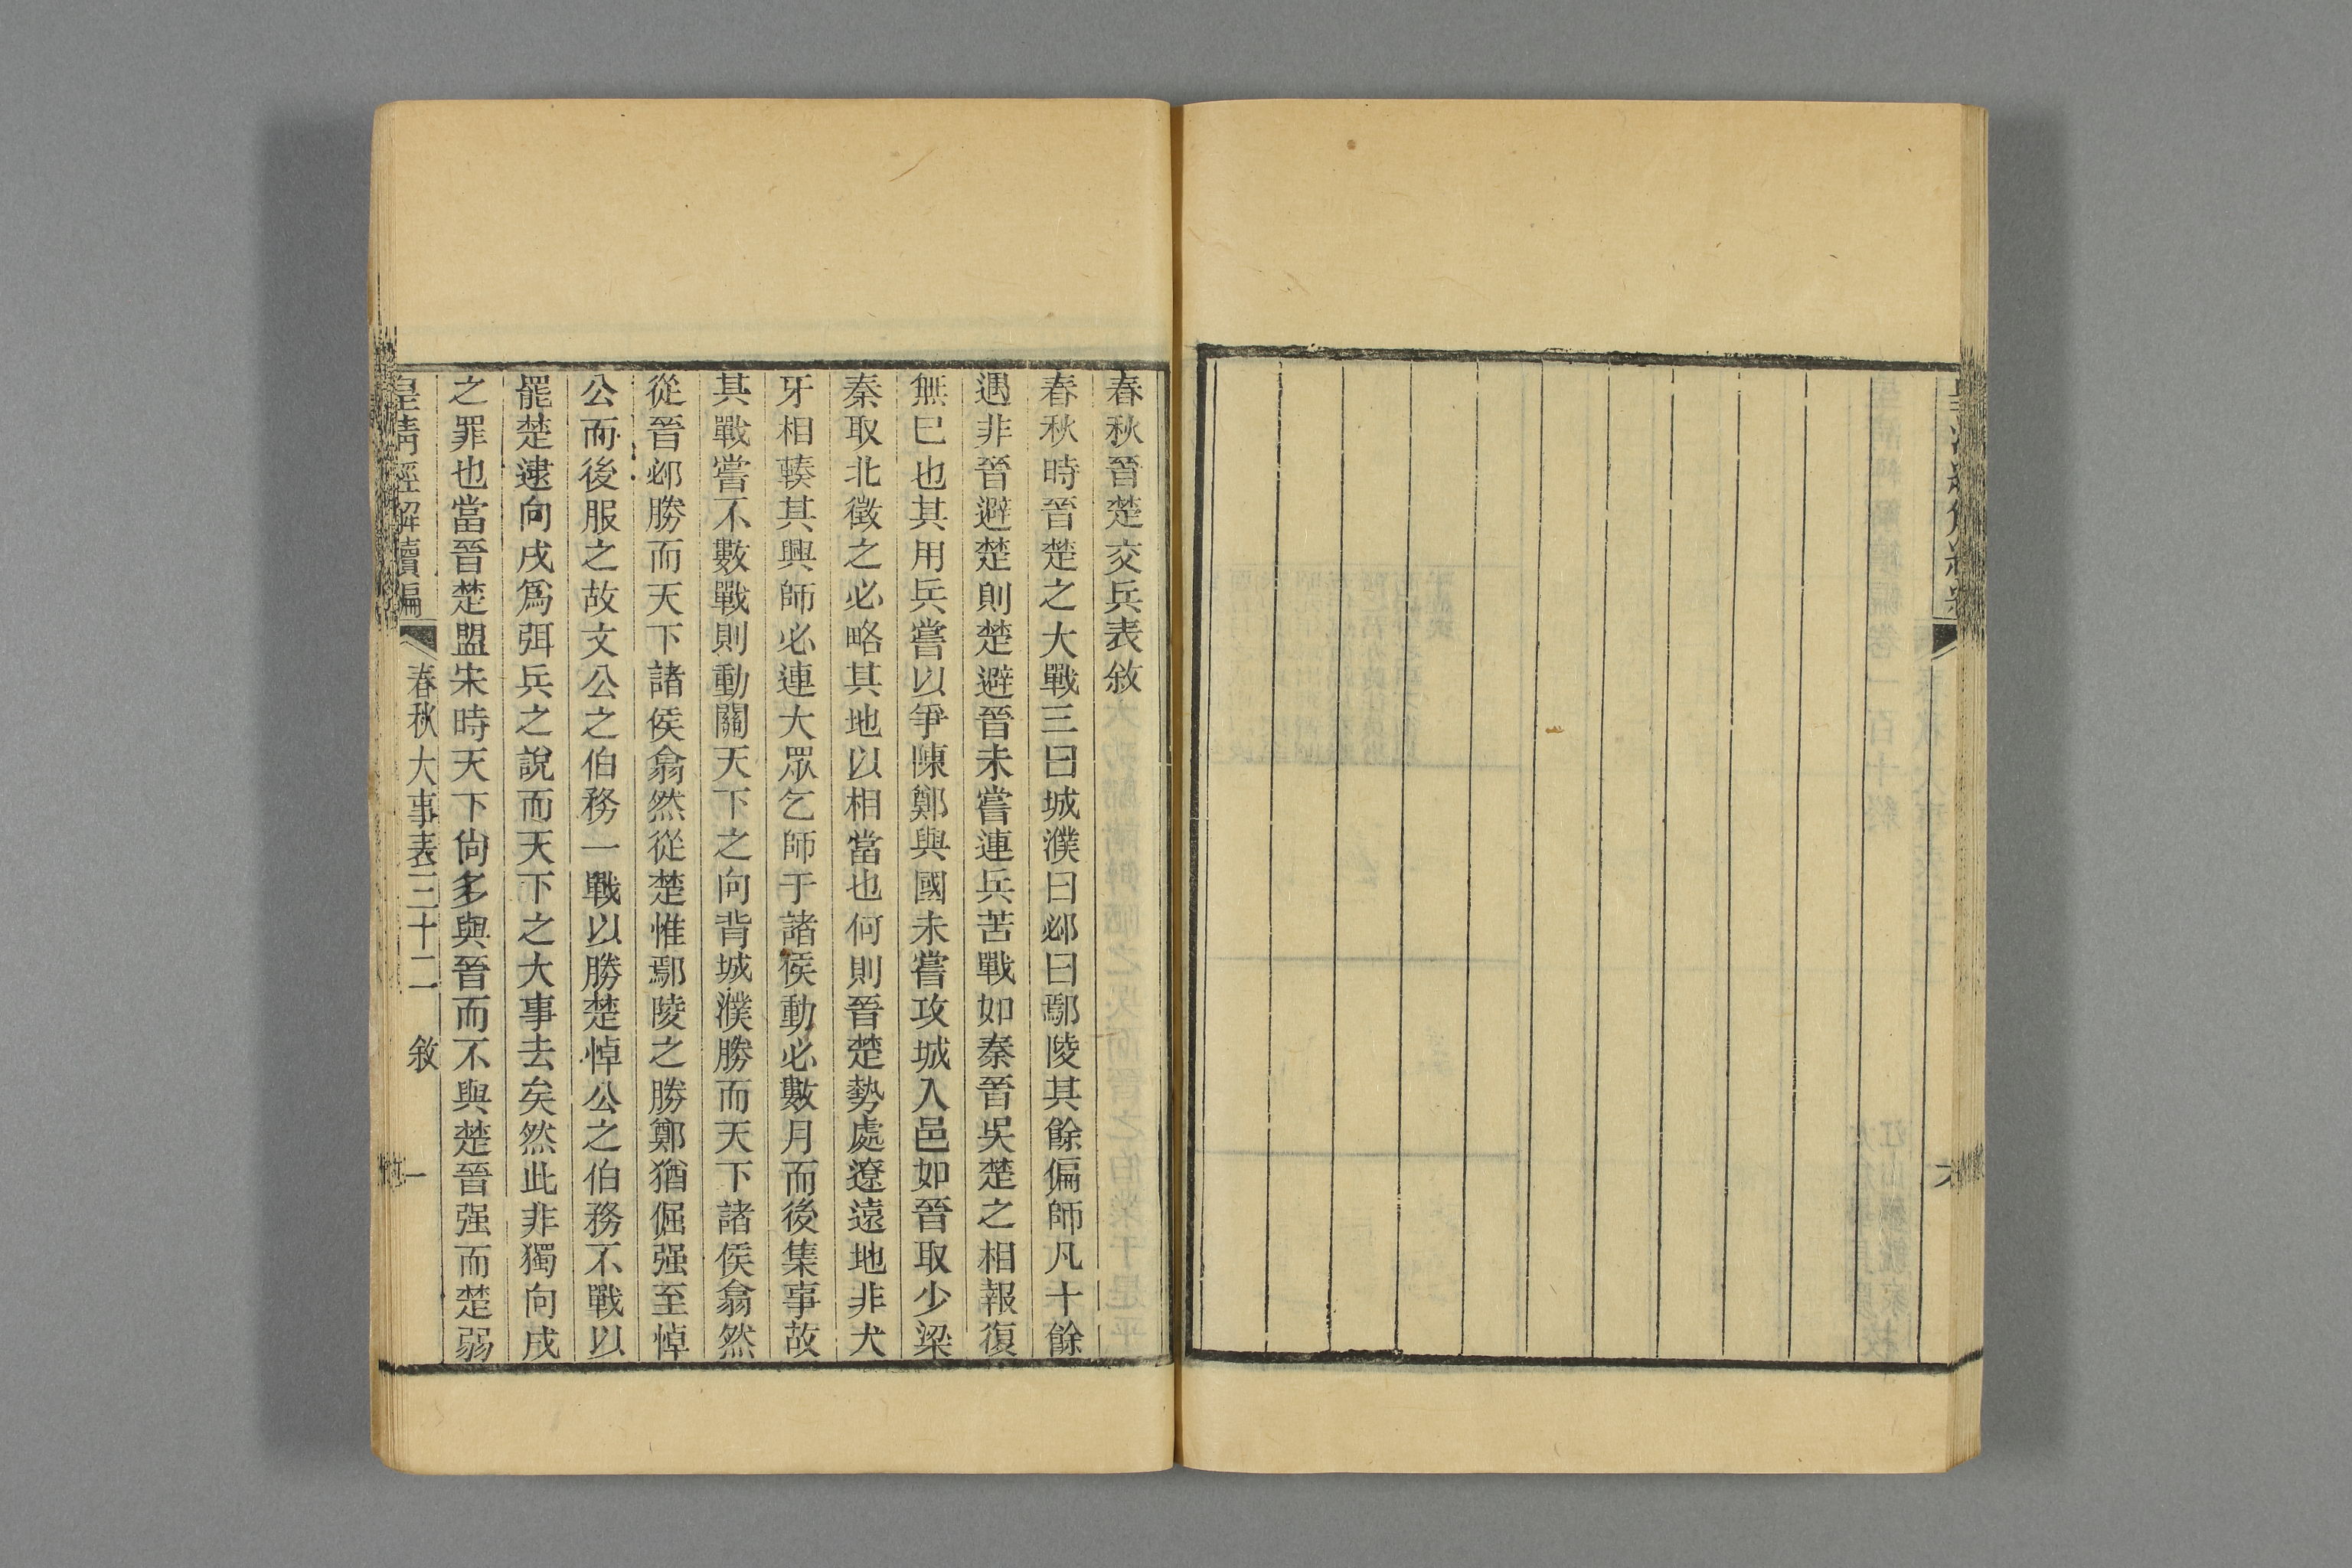 春秋晉楚交兵表敘
春秋時晉楚之大戰三曰城濮曰邲曰鄢陵其餘偏師凡十餘
遇非晉避楚則楚避晉未嘗連兵苦戰如秦晉吳楚之相報復
無已也其用兵嘗以爭陳鄭與國未嘗攻城入邑如晉取少梁
秦取北徵之必略其地以相當也何則晉楚勢處遼遠地非犬
牙相輳其興師必連大眾乞師于諸侯動必數月而後集事故
其戰嘗不數戰則動關天下之向背城濮勝而天下諸侯翕然
從晉邲勝而天下諸侯翕然從楚惟鄢陵之勝鄭猶倔强至悼
公而後服之故文公之伯務一戰以勝楚悼公之伯務不戰以
罷楚逮向戌爲弭兵之說而天下之大事去矣然此非獨向戌
之罪也當晉楚盟宋時天下尙多與晉而不與楚晉强而楚弱
皇清經解續編 春秋大事表三十二 敘 一